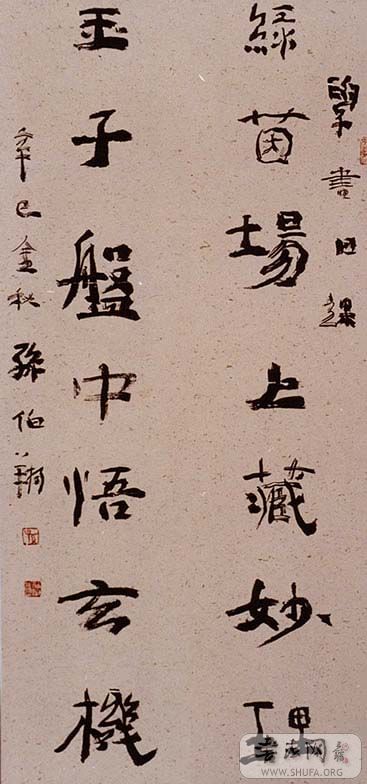 書日課
綠茵場上藏妙理
玉子盤中悟玄機
辛巳金秋孫伯翔
書法网
WWW.SHUFA.ORG